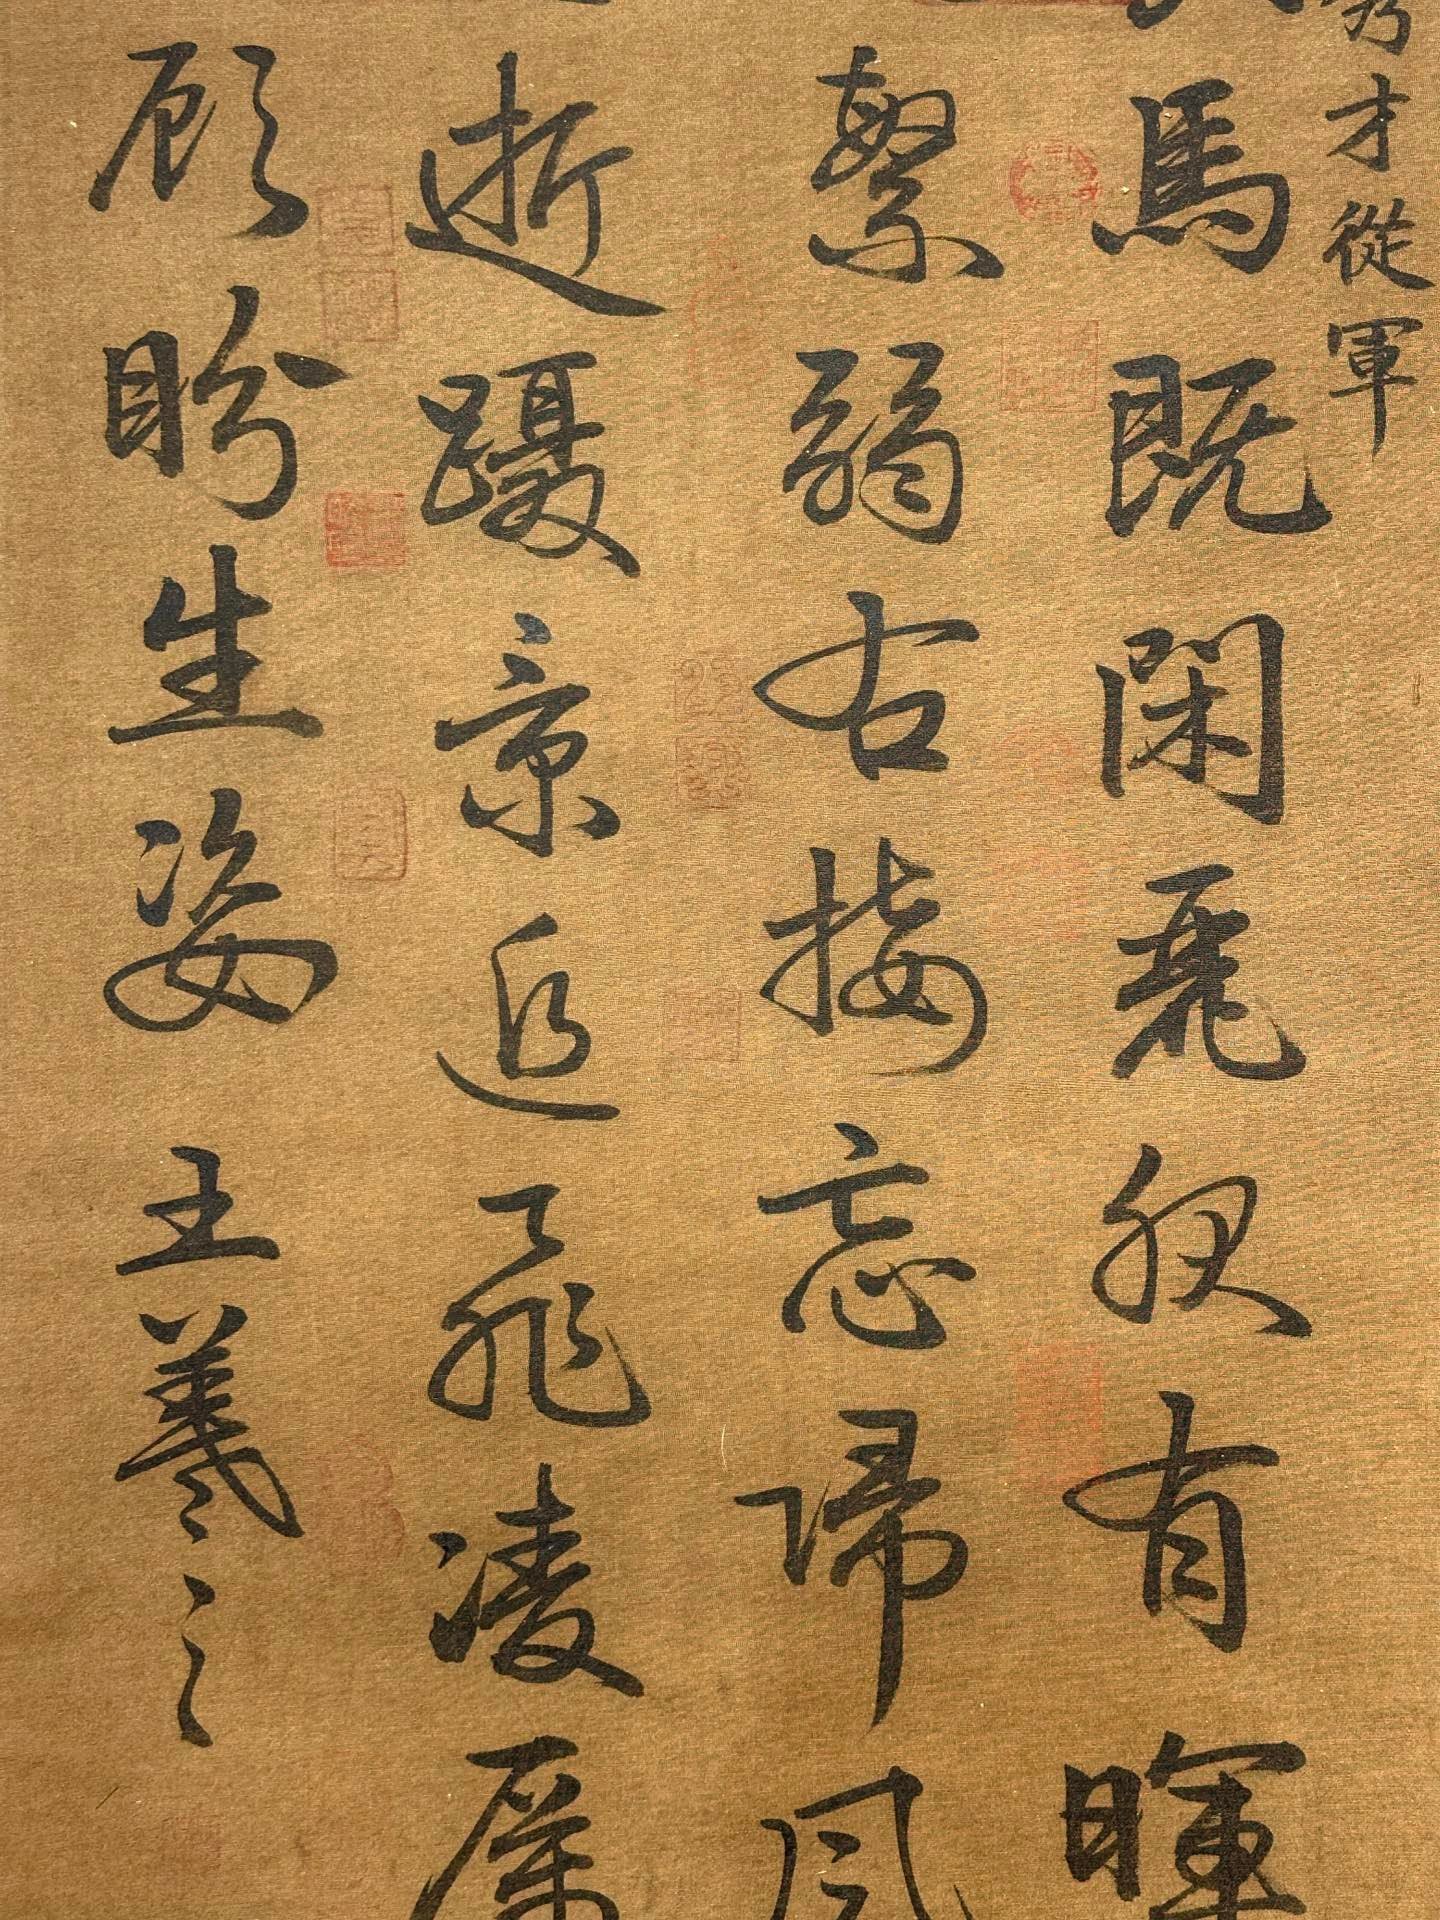 秀才從軍
馬既閑麗服有暉
繁弱右接忘歸風
逝躡景追飛凌厲
顧盼生姿 王羲之